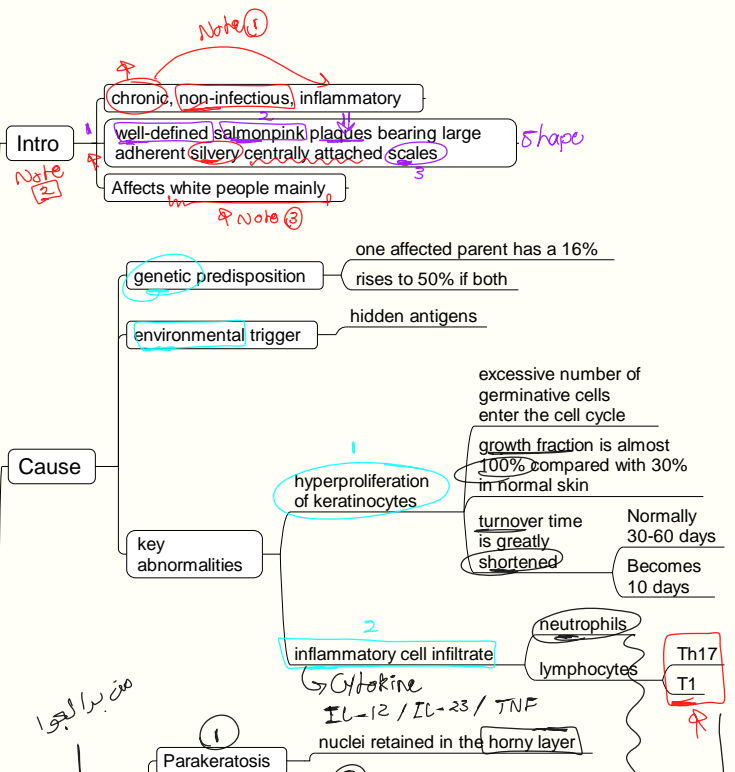 Note 1
chronic, non-infectious, inflammatory
1
2
Intro
well-defined salmonpink plaques bearing large
adherent silvery centrally attached scales
shape
3
Note
2
Affects white people mainly
Note 3
Cause
genetic predisposition
one affected parent has a 16%
rises to 50% if both
environmental trigger
hidden antigens
key
abnormalities
1
hyperproliferation
of keratinocytes
excessive number of
germinative cells
enter the cell cycle
growth fraction is almost
100% compared with 30%
in normal skin
turnover time
is greatly
shortened
Normally
30-60 days
Becomes
10 days
2
inflammatory cell infiltrate
neutrophils
lymphocytes
Th17
T1
Cytokine
IL-12 / IL-23 / TNF
من برا لجوا
1
Parakeratosis
nuclei retained in the horny layer